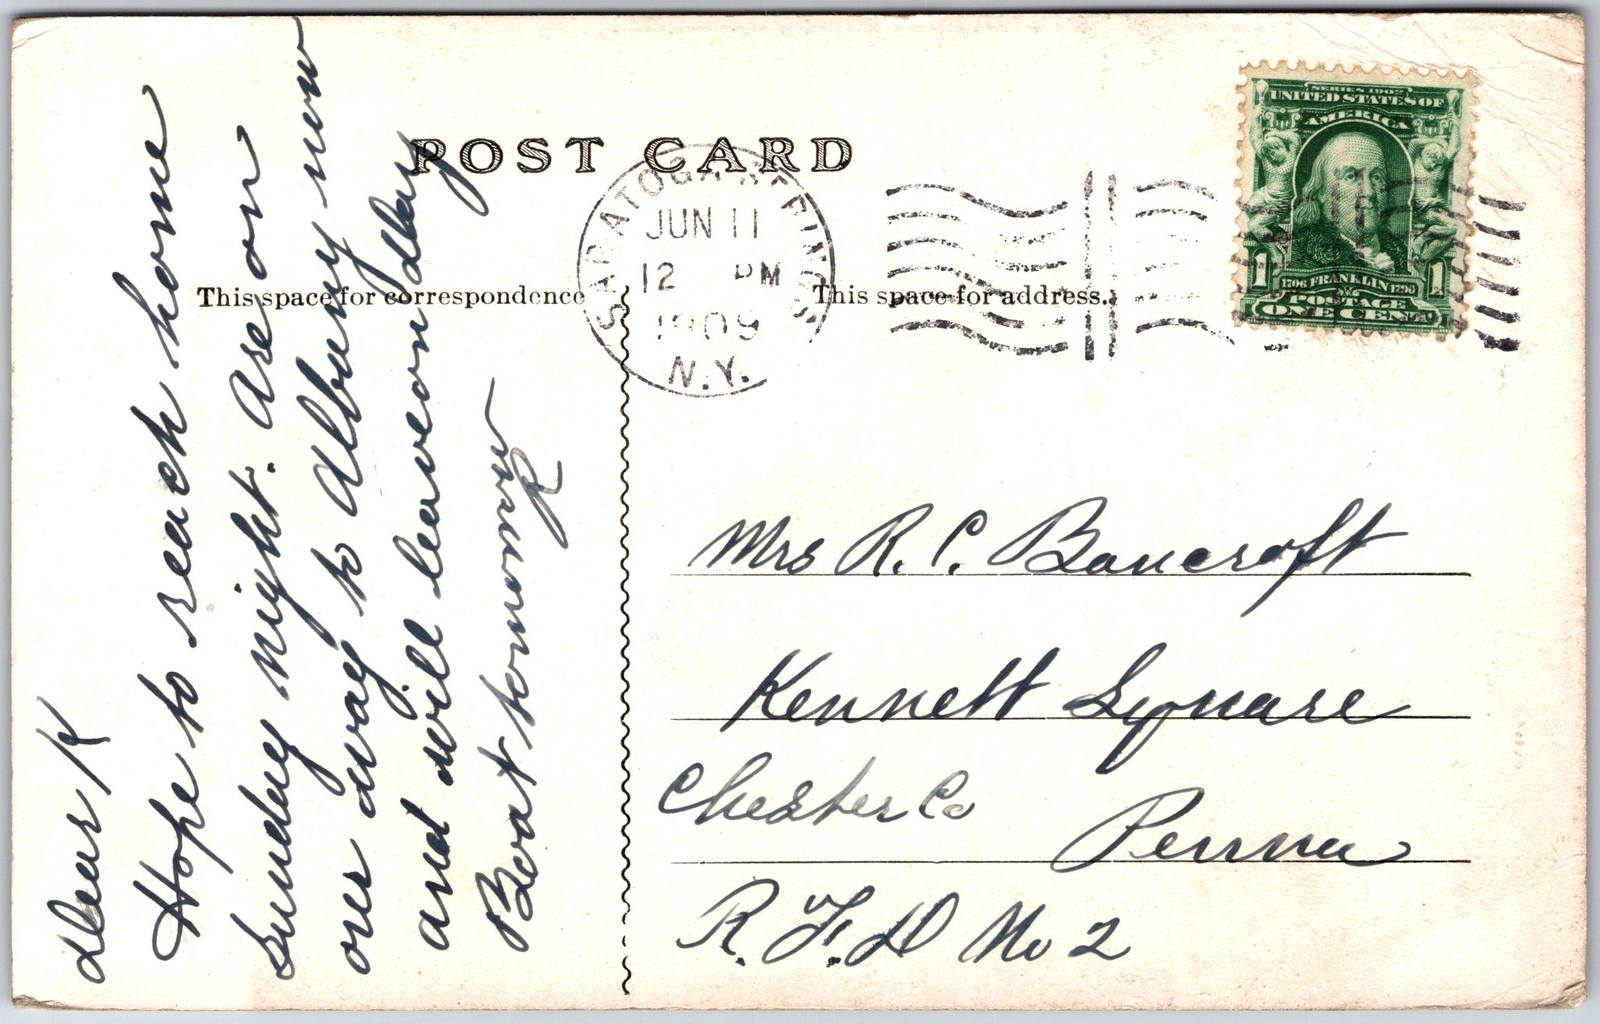 POST CARD
This space for correspondence
This space for address.
SARATOGA SPRINGS
JUN 11
12 PM
1909
N.Y.
SERIES 1902
UNITED STATES OF
AMERICA
1 1706 FRANKLIN 1790 1
POSTAGE
ONE CENT
Dear K
Hope to reach home
Sunday night. Are on
our way to Albany now
and will leave on day
Boat tomorrow
R
Mrs R. C. Bancroft
Kennett Square
Chester Co
Penna
R. F. D No 2